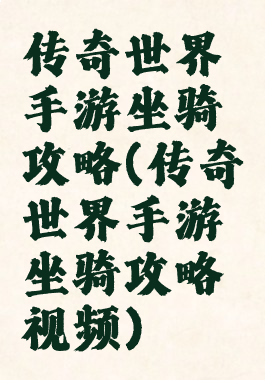 传奇世界
手游坐骑
攻略(传奇
世界手游
坐骑攻略
视频)